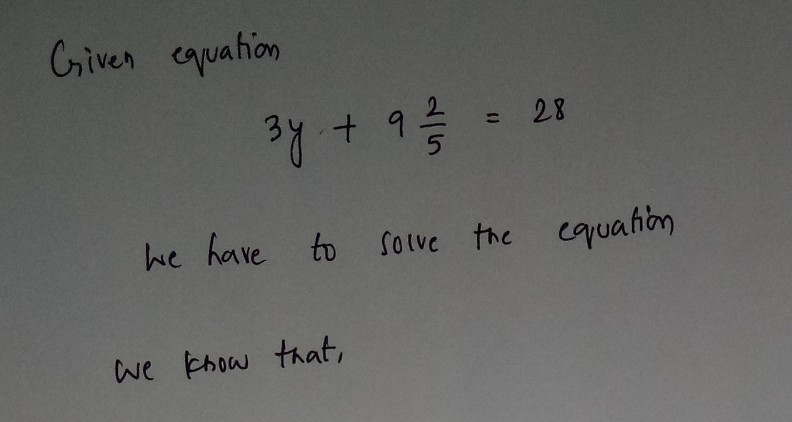 Given equation
3y + 9 2/5 = 28
We have to solve the equation
We know that,